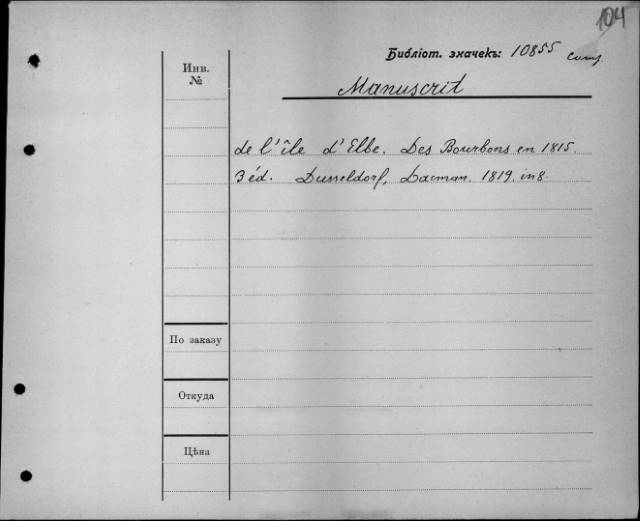 104
Библіот. значекъ: 10855
Инв.
№
Manuscrit
de l'île d'Elbe. Des Bourbons en 1815.
3 éd. Dusseldorf, Dacman. 1819. in 8.
По заказу
Откуда
Цѣна